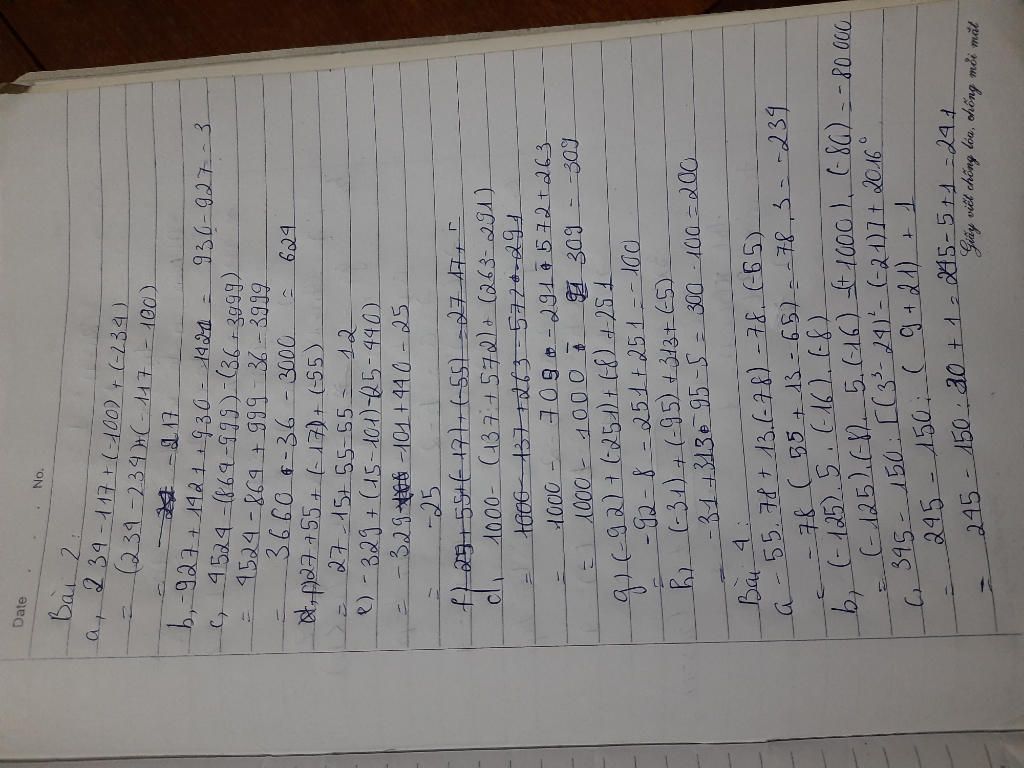 Date No.
Bài 2:
a, 234 - 117 + (-100) + (-234)
= (234 - 234) + (-117 - 100)
= -217
b, -927 + 1421 + 930 - 1421 = 930 - 927 = 3
c, 4524 - (864 - 999) - (36 + 3999)
= 4524 - 864 + 999 - 36 - 3999
= 3660 - 36 - 3000 = 624
27 + 55 + (-17) + (-55)
= 27 - 15 + 55 - 55 = 12
e) -329 + (15 - 101) - (25 - 440)
= -329 -101 + 440 - 25
= -25
f) 25 + 55 + (-17) + (-55) = 27 - 17 + -
d, 1000 - (137 + 572) + (263 - 291)
= 1000 - 137 + 263 - 572 - 291
= 1000 - 709 - 291 - 572 + 263
= 1000 - 1000 - 309 = -309
g, (-92) + (-251) + (-8) + 251
= -92 - 8 - 251 + 251 = -100
h, (-31) + (-95) + 313 + (-5)
= -31 + 313 - 95 - 5 = 300 - 100 = 200
Bài 4:
a - 55.78 + 13.(-78) - 78.(-65)
= -78 ( 55 + 13 - 65) = -78.3 = -234
b, (-125).5.(-16).(-8)
= (-125).(-8).5.(-16) = (+1000).(-80) = -80000
c, 395 - 150 : [(3² - 24)² - (-21)] + 2016⁰
= 245 - 150 : ( 9 + 21) + 1
= 245 - 150 : 30 + 1 = 245 - 5 + 1 = 241
Giấy viết chống lóa, chống mỏi mắt